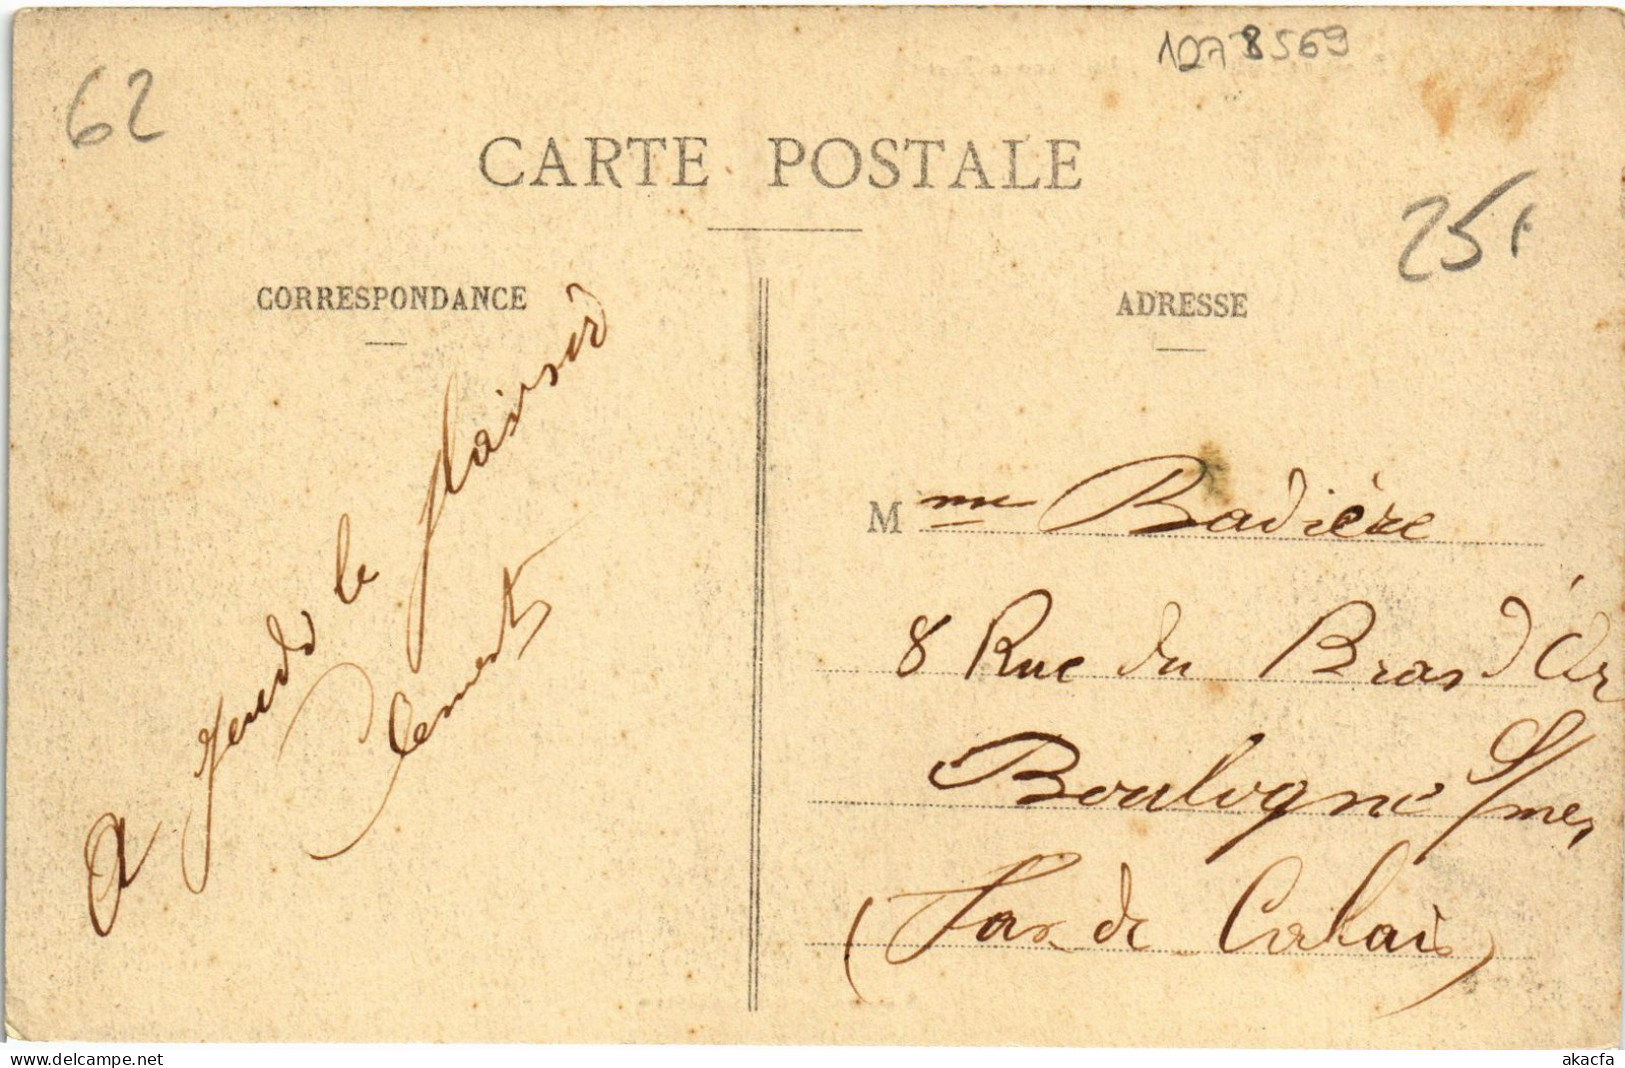 62
1278569
CARTE POSTALE
25F
CORRESPONDANCE
ADRESSE
A jeudi le plaisir
Clement
Mme Badière
8 Rue du Bras d'Or
Boulogne s/mer
(Pas de Calais)
delcampe.net
akacfa